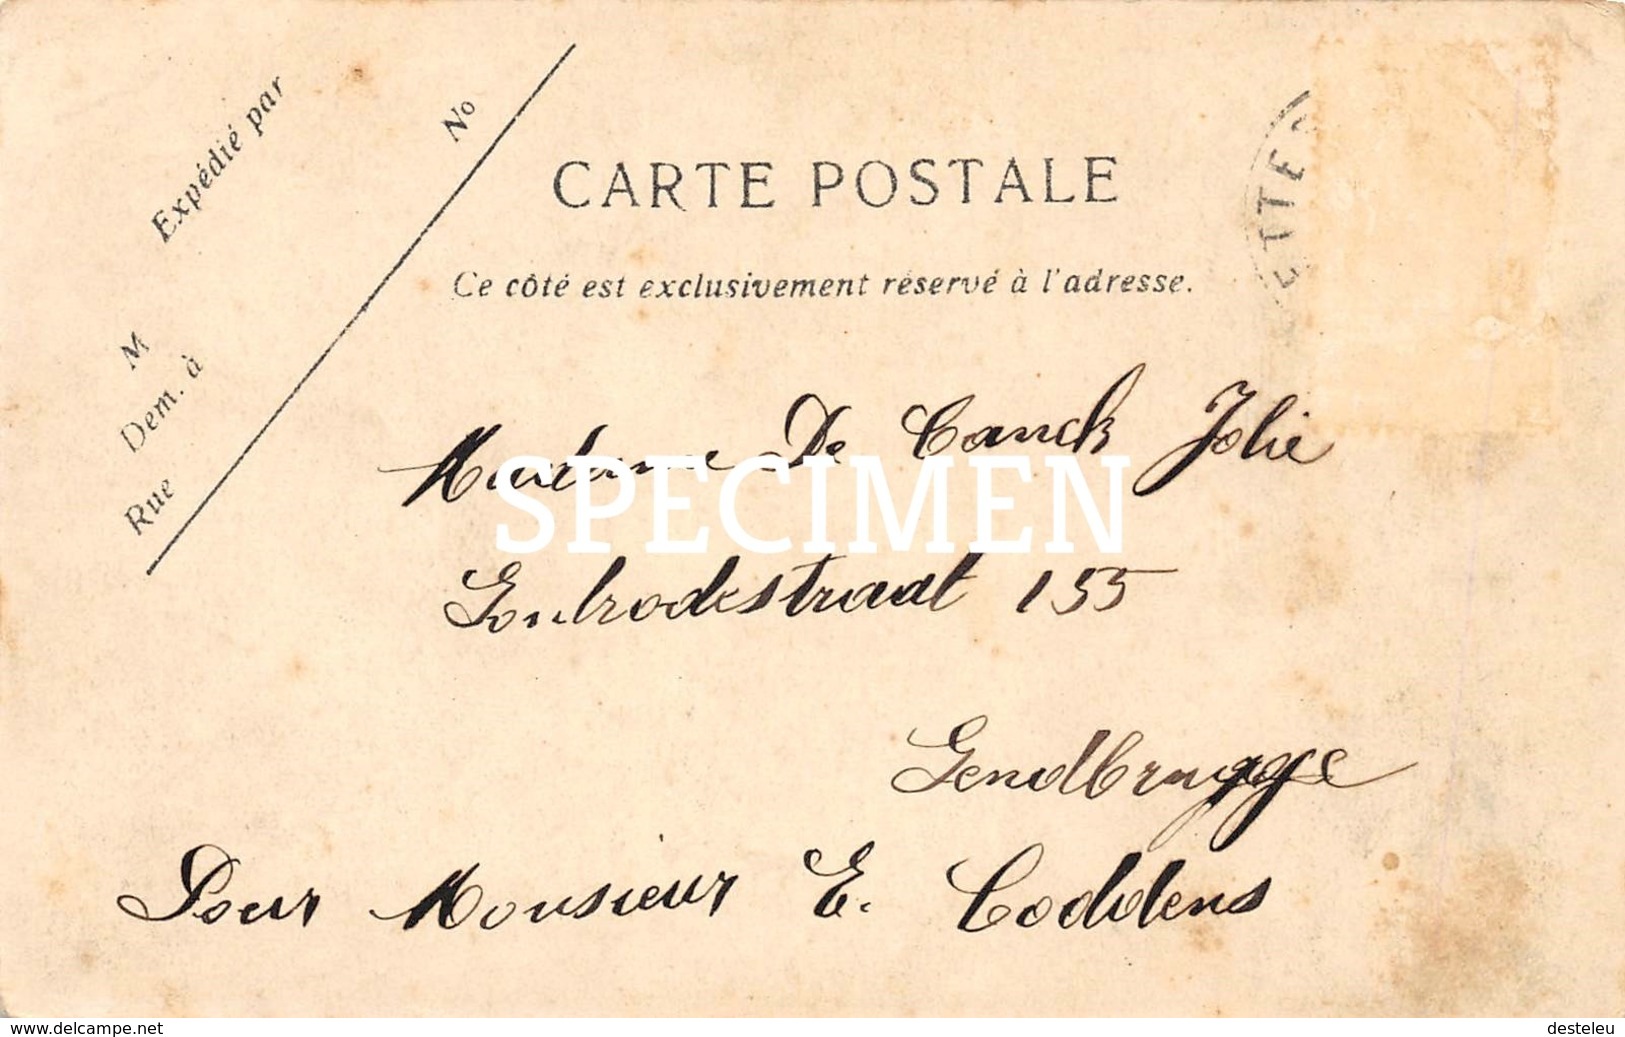 Expédié par
No
CARTE POSTALE
ETTE
Ce côté est exclusivement réservé à l'adresse.
M
Dem. à
Rue
Madame De Canck Jolie
SPECIMEN
Gontrodestraat 155
Gendbrugge
Pour Monsieur E. Coddens
www.delcampe.net
desteleu